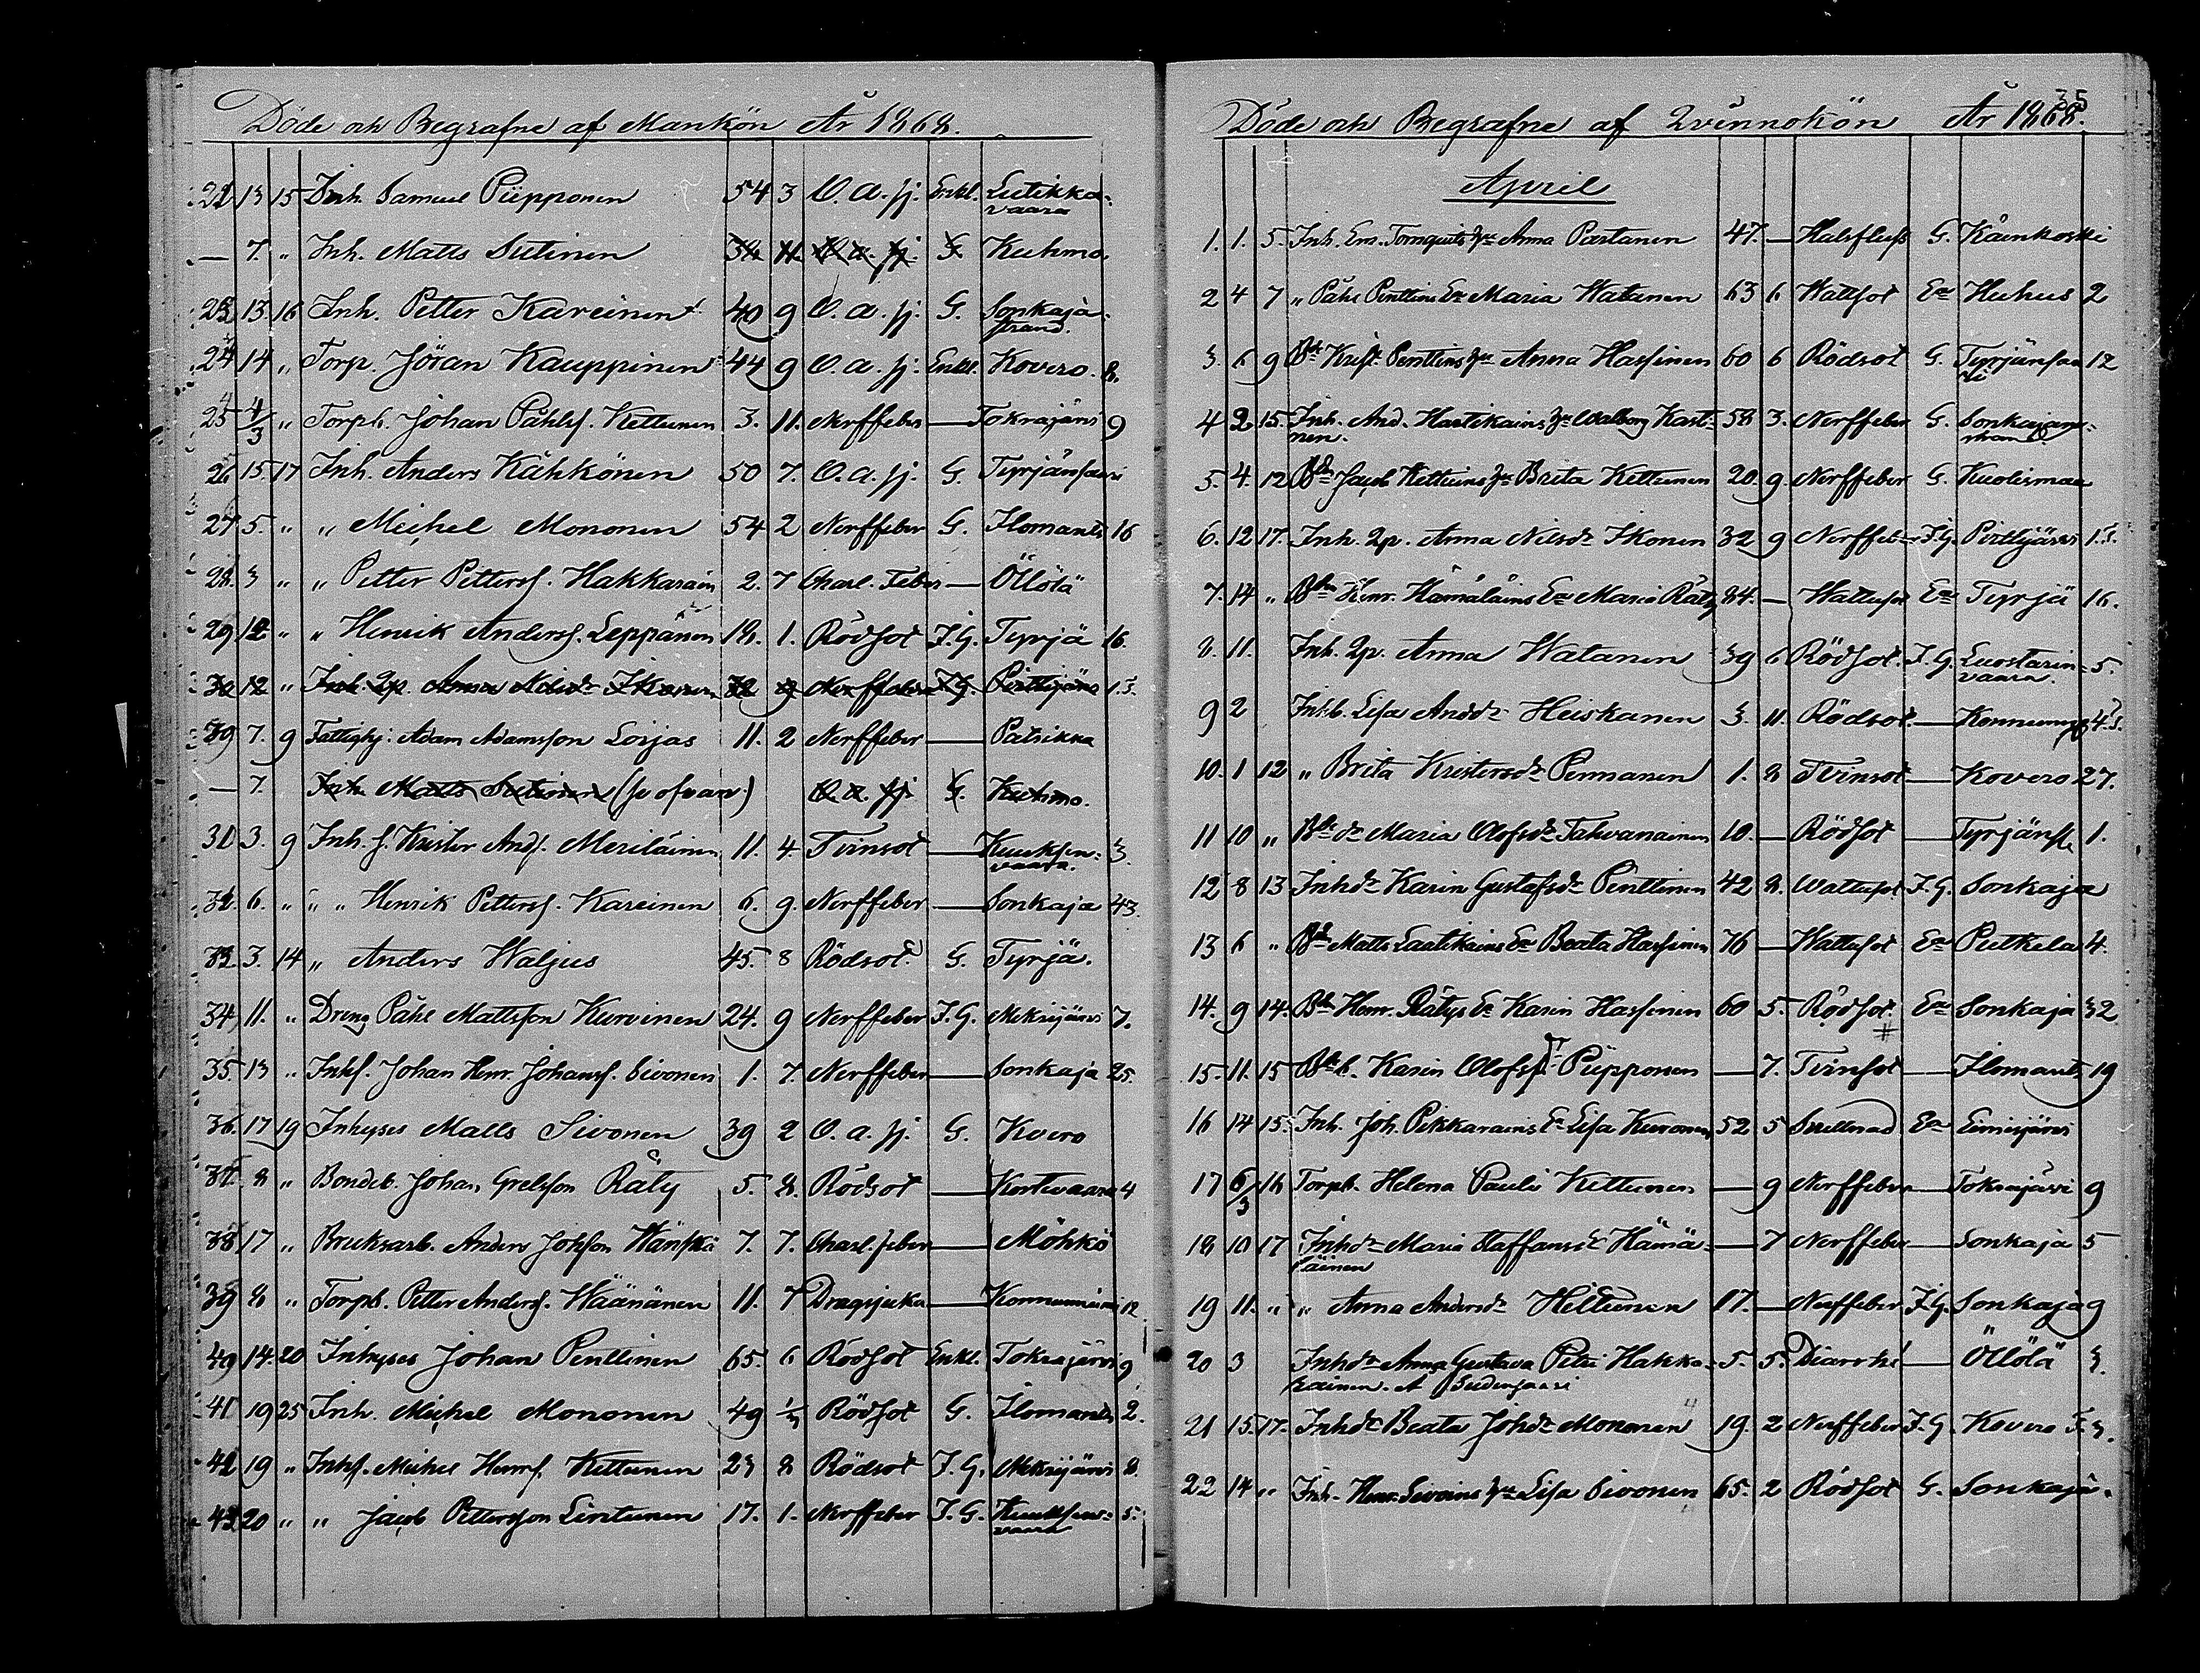 Döde och Begrafne af Mankön År 1868.
22 13 15 Inh. Samuel Piipponen 54 3 O. a. sj. Enkl. Liitikka-
vaara
— 7. " Inh. Matts Sutinen Kuhmo.
23 13. 16 Inh. Petter Kareinen 40 9 O. a. sj. G. Sonkaja
strand.
24 14 " Torp. Jöran Kauppinen 44 9 O. a. sj. Enkl. Kovero. 8.
25 4/3 " Torpb. Johan Påhlsf. Kettunen 3. 11. Nerffeber — Tokrajärvi 9
26 15. 17 Inh. Anders Kähkönen 50 7. O. a. sj. G. Tyrjänsaari
27 5. " " Michel Mononen 54 2 Nerffeber G. Ilomants 16
28. 3 " " Petter Pettersf. Hakkarain 2. 7 Charl. Feber — Öllölä
29 12 " " Henrik Andersf. Leppänen 18. 1. Rödsot J. G. Tyrjä 16.
30 12 " Inh. 2p. Anna Nilsdr Ikonen 32 9 Nerffeber J. G. Pirttijärvi 13.
30 7. 9 Fattighj. Adam Adamsson Loijas 11. 2 Nerffeber — Patrikka
— 7. Inh. Matts Sutinen (se ofvan) O. a. sj. G. Kuhmo.
31 3. 9 Inh. s. Krister Andf. Meriläinen 11. 4. Tvinsot — Kuuksen- 3.
vaara.
32. 6. " " " Henrik Pettersf. Kareinen 6. 9. Nerffeber — Sonkaja 43.
33. 3. 14 " Anders Waljus 45. 8 Rödsot G. Tyrjä.
34 11. " Dreng Påhl Mattsson Kurvinen 24. 9 Nerffeber J. G. Mekrijärvi 7.
35. 13 " Inhf. Johan Henr. Johansf. Sivonen 1. 7. Nerffeber — Sonkaja 25.
36. 17 19 Inhyses Matts Sivonen 39 2 O. a. sj. G. Kvero
37. 8 " Bondeb. Johan Grelsson Räty 5. 8. Rödsot — Kortevaara 4
38 17 " Bruksarb. Anders Johsson Hänskä 7. 7. Charl. feber — Möhkö
39 8 " Torpb. Petter Andersf. Wäänänen 11. 7 Dragsjuka — Konnunniemi 12
40 14. 20 Inhyses Johan Penttinen 65. 6 Rödsot Enkl. Tokrajärvi 9
41 19 25 Inh. Michel Mononen 49 Rödsot G. Ilomants 2.
42 19 " Inhf. Michel Henrf. Kettunen 23 8 Rödsot J. G. Mekrijärvi 8.
43 20 " " Jacob Pettersson Lintunen 17. 1. Nerffeber J. G. Kuuksen- 5.
vaara
35
Döde och Begrafne af Qvinnokön År 1868.
April
1. 1. 5. Inh. Ers. Tornquists hu Anna Partanen 47. — Halsfluss G. Käenkoski
2 4 7 " Påhl Penttins Ea Maria Watanen 63 6 Wattsot Ea Huhus 2
3. 6 9 Bde Krist. Penttins hu Anna Hassinen 60 6 Rödsot G. Tyrjänsaa 12
ri
4 2 15. Inh. And. Hartikains hu Walborg Karst- 58 3. Nerffeber G. Sonkajan-
nen.
5. 4. 12 Bde Jacob Kettuins hu Brita Kettunen 20. 9. Nerffeber G. Kuolismaa
6. 12 17. Inh. 2p. Anna Nilsdr Ikonen 32 9 Nerffeber J. G. Pirttijärvi 13.
7. 14 " Bde Henr. Hämäläins Ea Maria Räty 84. — Wattusot Ea Tyrjä 16.
8. 11. Inh. 2p. Anna Watanen 39 6 Rödsot. J. G. Luostarin- 5.
vaara.
9 2 Inhb. Lisa Andsdr Heiskanen 3. 11. Rödsot. —
10. 1 12 " Brita Kristersdr Pennanen 1. 8 Tvinsot — Kovero 27.
11 10 " Bde dr Maria Olofsdr Tahvanainen 10. — Rödsot — Tyrjänss 1.
12 8 13 Inhdr Karin Gustafsdr Penttinen 42 8. Wattusot J. G. Sonkaja
13 6 " Bde Matts Laatikains Ea Beata Hassinen 76 — Wattusot Ea Putkela 4.
14. 9 14. Bde Henr. Rätys Ea Karin Hassinen 60 5. Rödsot. # Ea Sonkaja 32
15. 11. 15 Bdeb. Karin Olofsdr Piipponen — 7. Tvinsot — Ilomants 19
16 14 15. Inh. Joh. Pikkarains Ea Lisa Kuronen 52 5 Svullnad Ea Eimisjärvi
17 6/3 16 Torpb. Helena Pauli Kettunen — 9 Nerffeber — Tokrajärvi 9
18 10 17 Inhdr Maria Staffansdr Hämä- — 7 Nerffeber — Sonkaja 5
läinen
19 11. " " Anna Andersdr Hiltunen 17. — Nerffeber J. G. Sonkaja 9
20 3 Inhdr Anna Gustava Petri Hakka- 5. 5. Diarrhé — Öllölä 3.
rainen.
21 15. 17. Inhdr Beata Johdr Mononen 19. 2 Nerffeber J. G. Kovero 3.
22 14 " Inh. Henr. Sivoins hu Lisa Sivonen 65. 2 Rödsot G. Sonkaja.